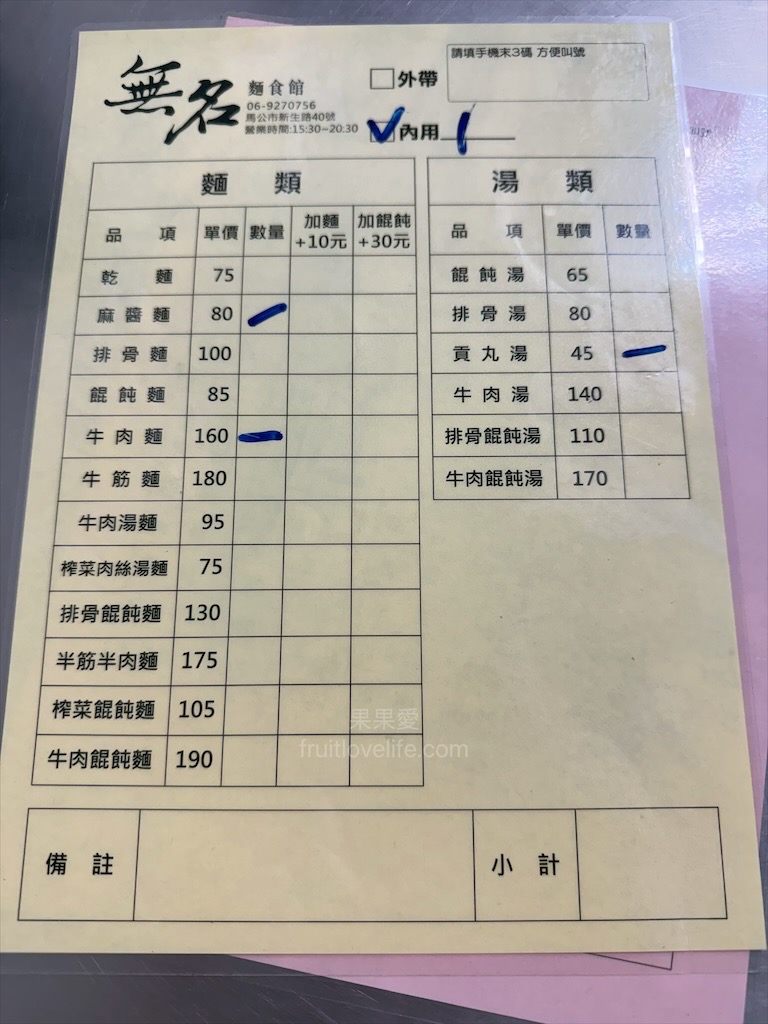 無名 麵食館
06-9270756
馬公市新生路40號
營業時間:15:30~20:30
□外帶
請填手機末3碼 方便叫號
☑內用 1
麵 類
品 項 單價 數量 加麵+10元 加餛飩+30元
乾 麵 75
麻醬麵 80 一
排骨麵 100
餛飩麵 85
牛肉麵 160 一
牛筋麵 180
牛肉湯麵 95
榨菜肉絲湯麵 75
排骨餛飩麵 130
半筋半肉麵 175
榨菜餛飩麵 105
牛肉餛飩麵 190
湯 類
品 項 單價 數量
餛飩湯 65
排骨湯 80
貢丸湯 45 一
牛肉湯 140
排骨餛飩湯 110
牛肉餛飩湯 170
果果愛
fruitlovelife.com
備 註
小 計